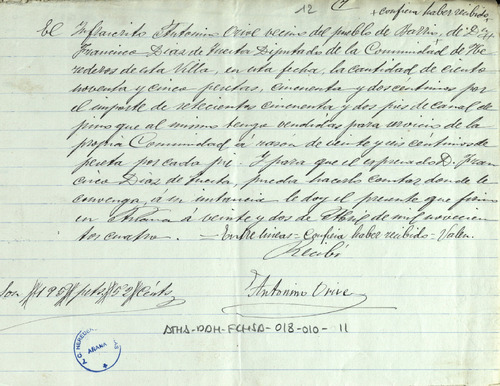 12
+ confiesa haber recibido,
El Infrascrito Antonino Orive vecino del pueblo de Barrio, de D.
Francisco Dias de Tuesta Diputado de la Comunidad de He-
rederos de esta Villa, en esta fecha, la cantidad de ciento
noventa y cinco pesetas, cincuenta y dos centimos por
el importe de setecientos cincuenta y dos pies de canal de
pino que al mismo tengo vendidas para servicio de la
propia Comunidad á razon de veinte y seis centimos de
peseta por cada pié. Y para que el expresado D. Fran-
cisco Dias de Tuesta, pueda hacerlo constar donde le
convenga, á su instancia le doy el presente que firmo
en Añana á veinte y dos de Abril de mil novecien-
tos cuatro. - Entre lineas - Confiesa haber recibido - Valen.
Recibí
Son #195# pets #52# cénts
Antonino Orive
ATHA-DAH-FCHSA-018-010-11
AÑANA